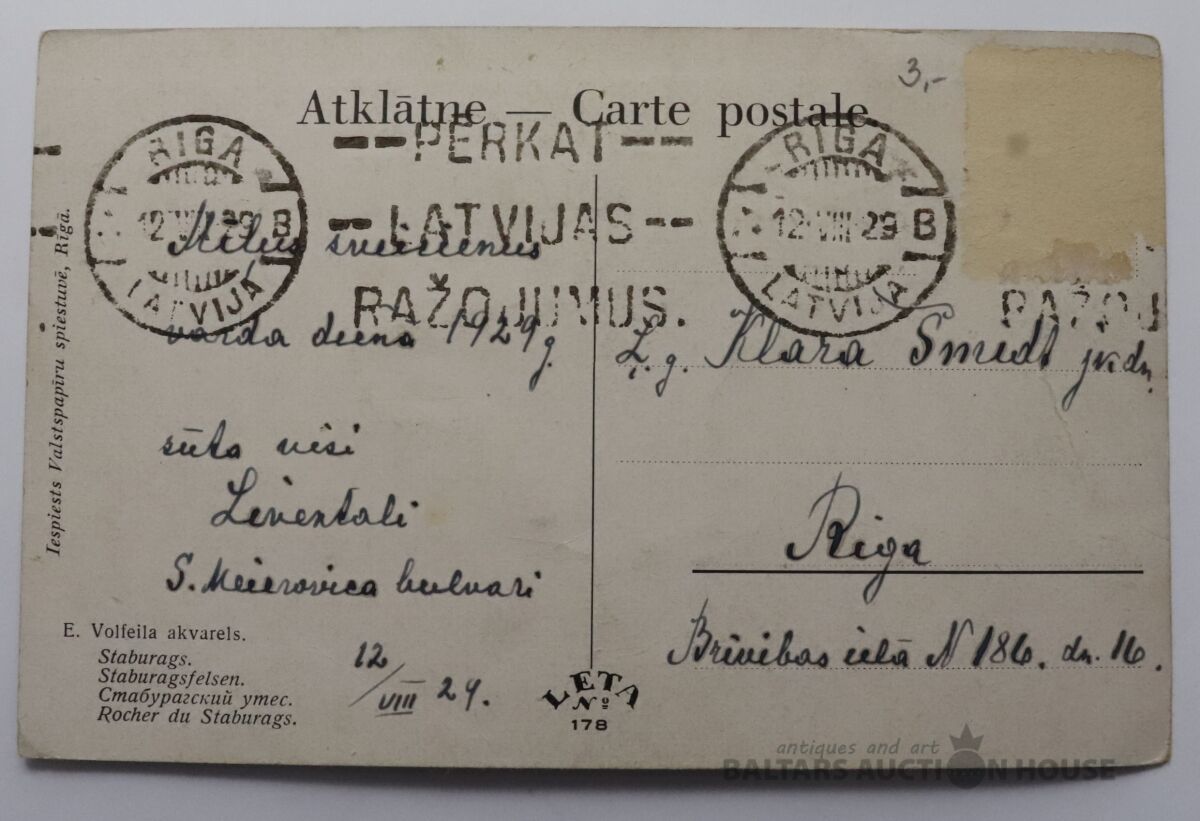 3,-
Atklātne — Carte postale
RIGA
12 VIII 29 B
LATVIJA
PĒRKAT
LATVIJAS
RAŽOJUMUS.
RIGA
12 VIII 29 B
LATVIJA
RAŽOJ
Iespiests Valstspapīru spiestuvē, Rīgā.
Milus sveicienus
vārda dienā 1929 g.
sūta visi
Liventali
S. Meierovica bulvari
12/VIII 29.
Ļ. g. Klara Smidt jkdz.
Riga
Brivibas ielā N 186. dz. 16.
E. Volfeila akvarels.
Staburags.
Staburagsfelsen.
Стабурагский утес.
Rocher du Staburags.
LETA
No
178
antiques and art
BALTARS AUCTION HOUSE